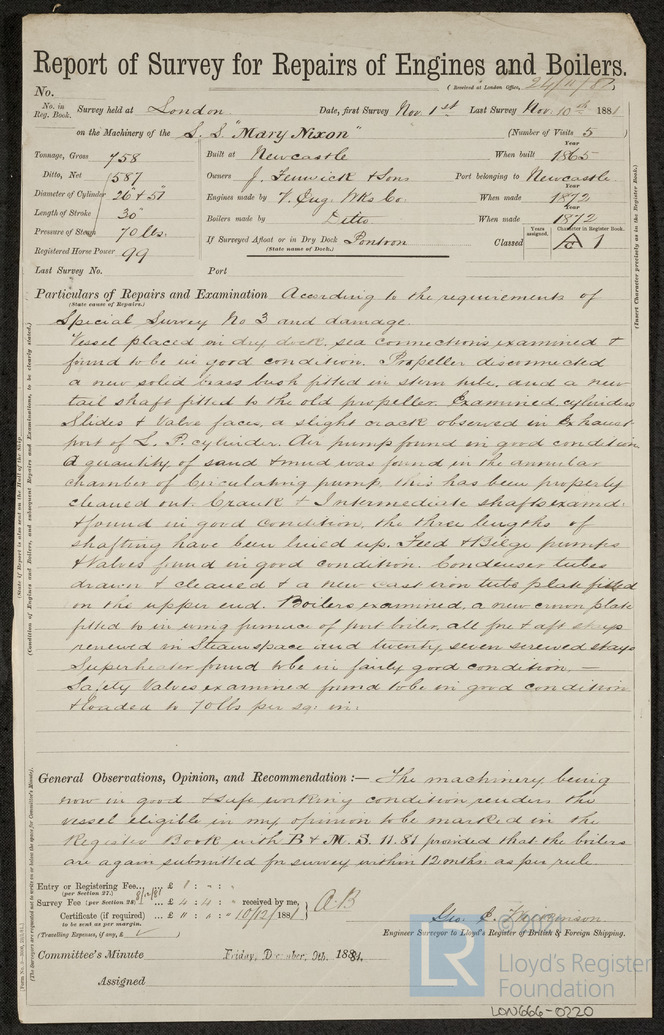 Report of Survey for Repairs of Engines and Boilers.
(Received at London Office, 24/11/81)
No.
No. in Reg. Book. Survey held at London Date, first Survey Nov. 1st Last Survey Nov. 10th 1881
on the Machinery of the S.S. "Mary Nixon" (Number of Visits 5)
Tonnage, Gross 758
Ditto, Net 587
Diameter of Cylinder 26" & 51"
Length of Stroke 30"
Pressure of Steam 70 lbs.
Registered Horse Power 99
Built at Newcastle When built Year 1865
Owners J. Fenwick & Sons Port belonging to Newcastle
Engines made by When made Year 1872
Boilers made by Ditto When made Year 1872
If Surveyed Afloat or in Dry Dock Pontoon
(State name of Dock.)
Classed Years assigned. Character in Register Book. A 1
Last Survey No. Port
Particulars of Repairs and Examination According to the requirements of
(State cause of Repairs.)
Special Survey No 3 and damage.
Vessel placed in dry dock, sea connections examined &
found to be in good condition. Propeller disconnected
a new solid brass bush fitted in stern tube, and a new
tail shaft fitted to the old propeller. Examined cylinders
Slides & Valve faces, a slight crack observed in Exhaust
port of L. P. cylinder. Air pump found in good condition
A quantity of sand & mud was found in the annular
chamber of Circulating pump, this has been properly
cleaned out. Crank & Intermediate shafts examd.
& found in good condition, the three lengths of
shafting have been lined up. Feed & Bilge pumps
& Valves found in good condition. Condenser tubes
drawn & cleaned & a new cast iron tube plate fitted
on the upper end. Boilers examined, a new crown plate
fitted to in wing furnace of port boiler, all fore & aft stays
renewed in Steam space and twenty seven screwed stays
Superheater found to be in fairly good condition. —
Safety Valves examined found to be in good condition
& loaded to 70 lbs per sq: in:
General Observations, Opinion, and Recommendation :— The machinery being
now in good & safe working condition renders the
vessel eligible in my opinion to be marked in the
Register Book with B & M. S. 11.81 provided that the boilers
are again submitted for survey within 12 mths as per rule
Entry or Registering Fee... £ 1 : " : "
(per Section 27.)
Survey Fee (per Section 28) ... £ 4 : 4 : " received by me, A.B
Certificate (if required) ... £ " : " : " 10/12/1881
to be sent as per margin.
(Travelling Expenses, if any, £ )
Geo. E.
Engineer Surveyor to Lloyd's Register of British & Foreign Shipping.
Committee's Minute Friday, December, 9th, 1881.
Assigned
(Insert Character precisely as in the Register Book.)
(State if Report is also sent on the Hull of the Ship.
LR
©2020
Lloyd's Register
Foundation
LON666-0220